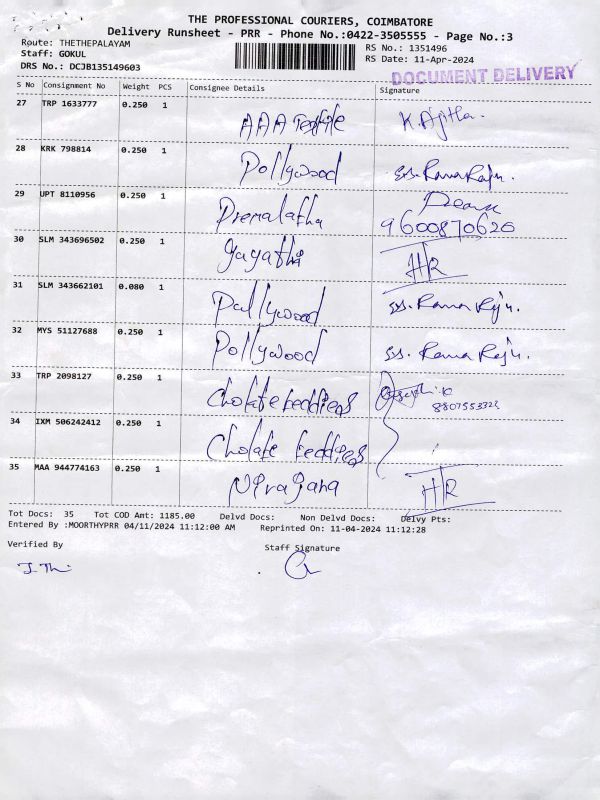 THE PROFESSIONAL COURIERS, COIMBATORE
Delivery Runsheet - PRR - Phone No.:0422-3505555 - Page No.:3
Route: THETHEPALAYAM
RS No.: 1351496
Staff: GOKUL
RS Date: 11-Apr-2024
DRS No.: DCJB135149603
DOCUMENT DELIVERY
S No Consignment No Weight PCS Consignee Details Signature
27 TRP 1633777 0.250 1 AAA Textile K. Ajitha.
28 KRK 798814 0.250 1 Pollywood Rama Raju.
29 UPT 8110956 0.250 1 Premalatha
9600870620
30 SLM 343696502 0.250 1 HR
31 SLM 343662101 0.080 1 Pallywood Rama Raju.
32 MYS 51127688 0.250 1 Pollywood Rama Raju.
33 TRP 2098127 0.250 1 Cholate
34 IXM 506242412 0.250 1 Cholate
35 MAA 944774163 0.250 1 HR
Tot Docs: 35 Tot COD Amt: 1185.00 Delvd Docs: Non Delvd Docs: Delvy Pts:
Entered By :MOORTHYPRR 04/11/2024 11:12:00 AM Reprinted On: 11-04-2024 11:12:28
Verified By
Staff Signature